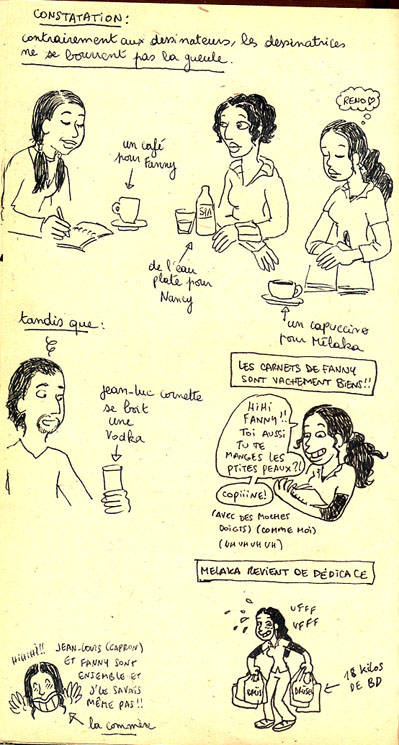 CONSTATATION:
contrairement aux dessinateurs, les dessinatrices
ne se bourrent pas la gueule.
RENO♡
un café
pour Fanny
de l'eau
plate pour
Nancy
un capuccino
pour Mélaka
tandis que:
jean-luc cornette
se boit
une
vodka
LES CARNETS DE FANNY
SONT VACHEMENT BIENS!!
HIHI
FANNY!!
TOI AUSSI
TU TE
MANGES LES
PTITES PEAUX?!
COPIIINE!
(AVEC DES MOCHES
DOIGTS) (COMME MOI)
(UH UH UH UH)
MELAKA REVIENT DE DÉDICACE
UFFF
UFFF
18 kilos
DE BD
HIHIHI!!
JEAN-LOUIS (CAPRON)
ET FANNY SONT
ENSEMBLE ET
J'LE SAVAIS
MÊME PAS!!
la commère